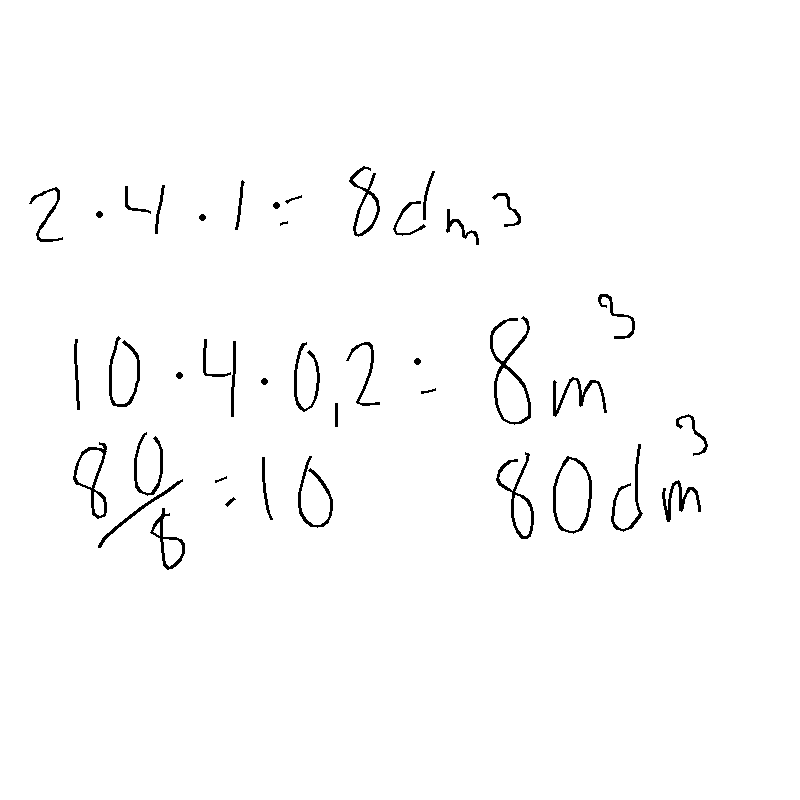 2 · 4 · 1 = 8dm³
10 · 4 · 0,2 = 8m³
80/8 = 10 80dm³